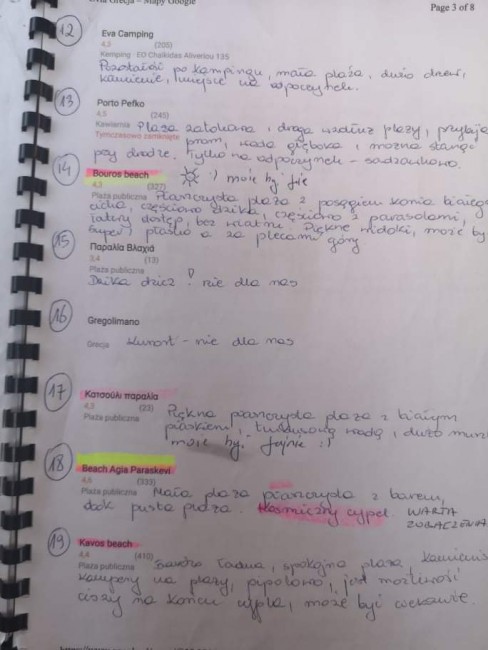 Grecja – Mapy Google
Page 3 of 8
12 Eva Camping
4,3 (205)
Kemping · EO Chalkidas Aliveriou 135
Pozostałość po kempingu, mała plaża, dużo drzew,
kamienie, miejsce na odpoczynek.
13 Porto Pefko
4,5 (245)
Kawiarnia Plaża zatokowa, droga wzdłuż plaży,
Tymczasowo zamknięte prom, woda głęboka, można stanąć
przy drodze. Tylko na odpoczynek –
14 Bouros beach :) może być fajnie
4,3 (327)
Plaża publiczna Piaszczysta plaża z posągiem konia białego
cicha, częściowo dzika, częściowo z parasolami,
łatwy dostęp, bez wiatru. Piękne widoki, może być
super! płasko a za plecami góry
15 Παραλία Βλαχιά
3,4 (13)
Plaża publiczna
Dzika dzicz! nie dla nas
16 Gregolimano
Grecja Kurort – nie dla nas
17 Κατσούλι παραλία
4,3 (23)
Plaża publiczna Piękna piaszczysta plaża z białym
piaskiem, turkusową wodą, dużo
może być fajnie :)
18 Beach Agia Paraskevi
4,6 (353)
Plaża publiczna Mała plaża piaszczysta z barem,
obok pusta plaża. Kosmiczny cypel. WARTA
ZOBACZENIA
19 Kavos beach
4,4 (410)
Plaża publiczna Bardzo ładna, spokojna plaża, kamienista
kampery na plaży, jest możliwość
ciszy na końcu cypla, może być ciekawie.